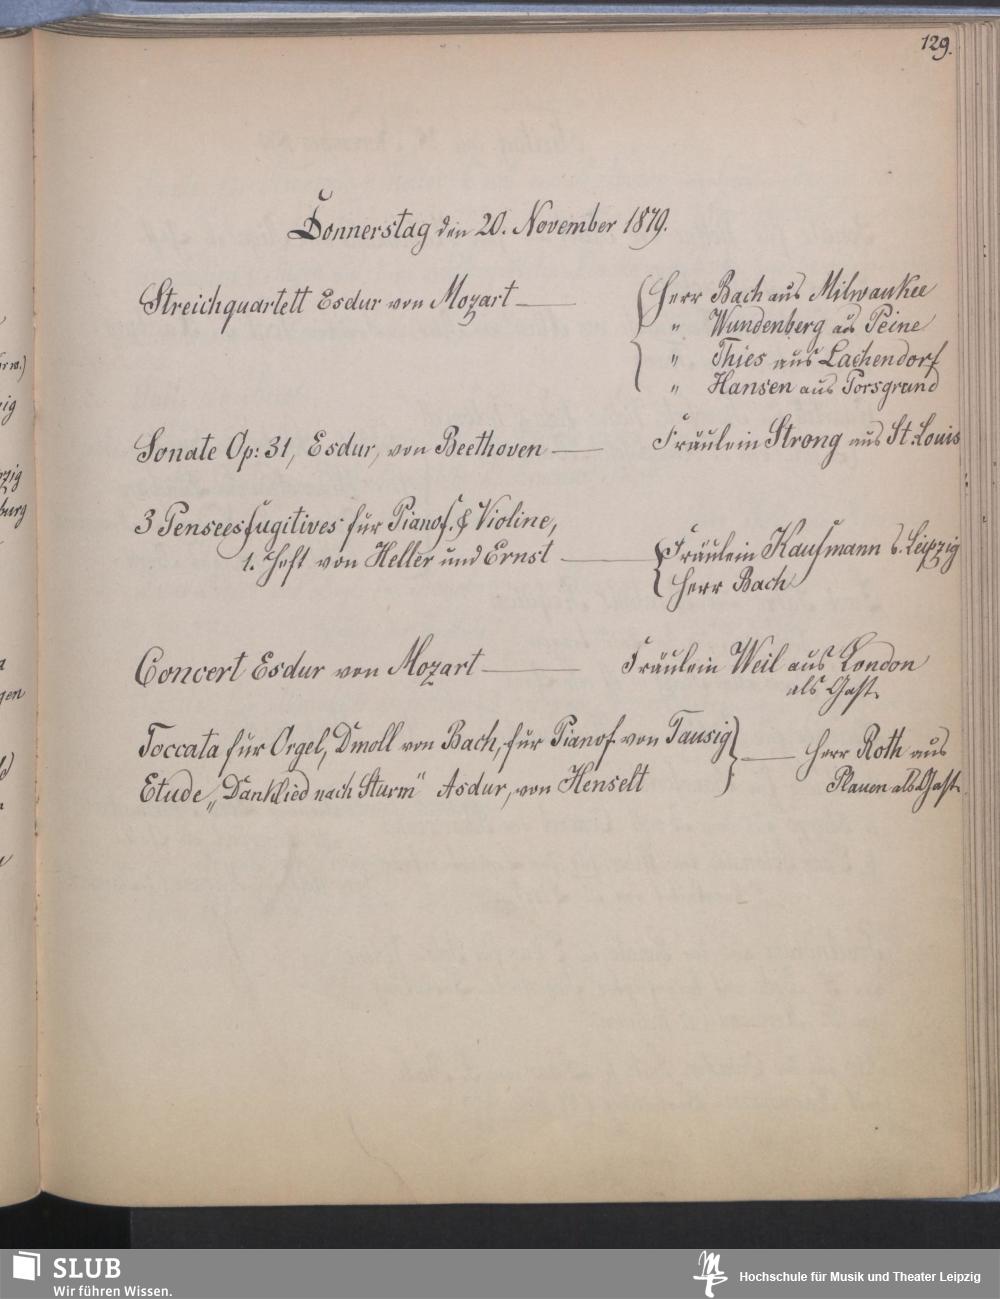 129.
Donnerstag den 20. November 1879.
Streichquartett Esdur von Mozart — Herr Bach aus Milwaukee
" Wundenberg aus Peine
" Thies aus Lachendorf
" Hansen aus Porsgrund
Sonate Op: 31, Esdur, von Beethoven — Fräulein Strong aus St. Louis
3 Pensees fugitives für Pianof. & Violine,
1. Heft von Heller und Ernst — Fräulein Kaufmann b. Leipzig
Herr Bach
Concert Esdur von Mozart — Fräulein Weil aus London
als Gast.
Toccata für Orgel, Dmoll von Bach, für Pianof. von Tausig
Etude „Danklied nach Sturm" Asdur, von Henselt — Herr Roth aus
Plauen als Gast.
SLUB
Wir führen Wissen.
Hochschule für Musik und Theater Leipzig